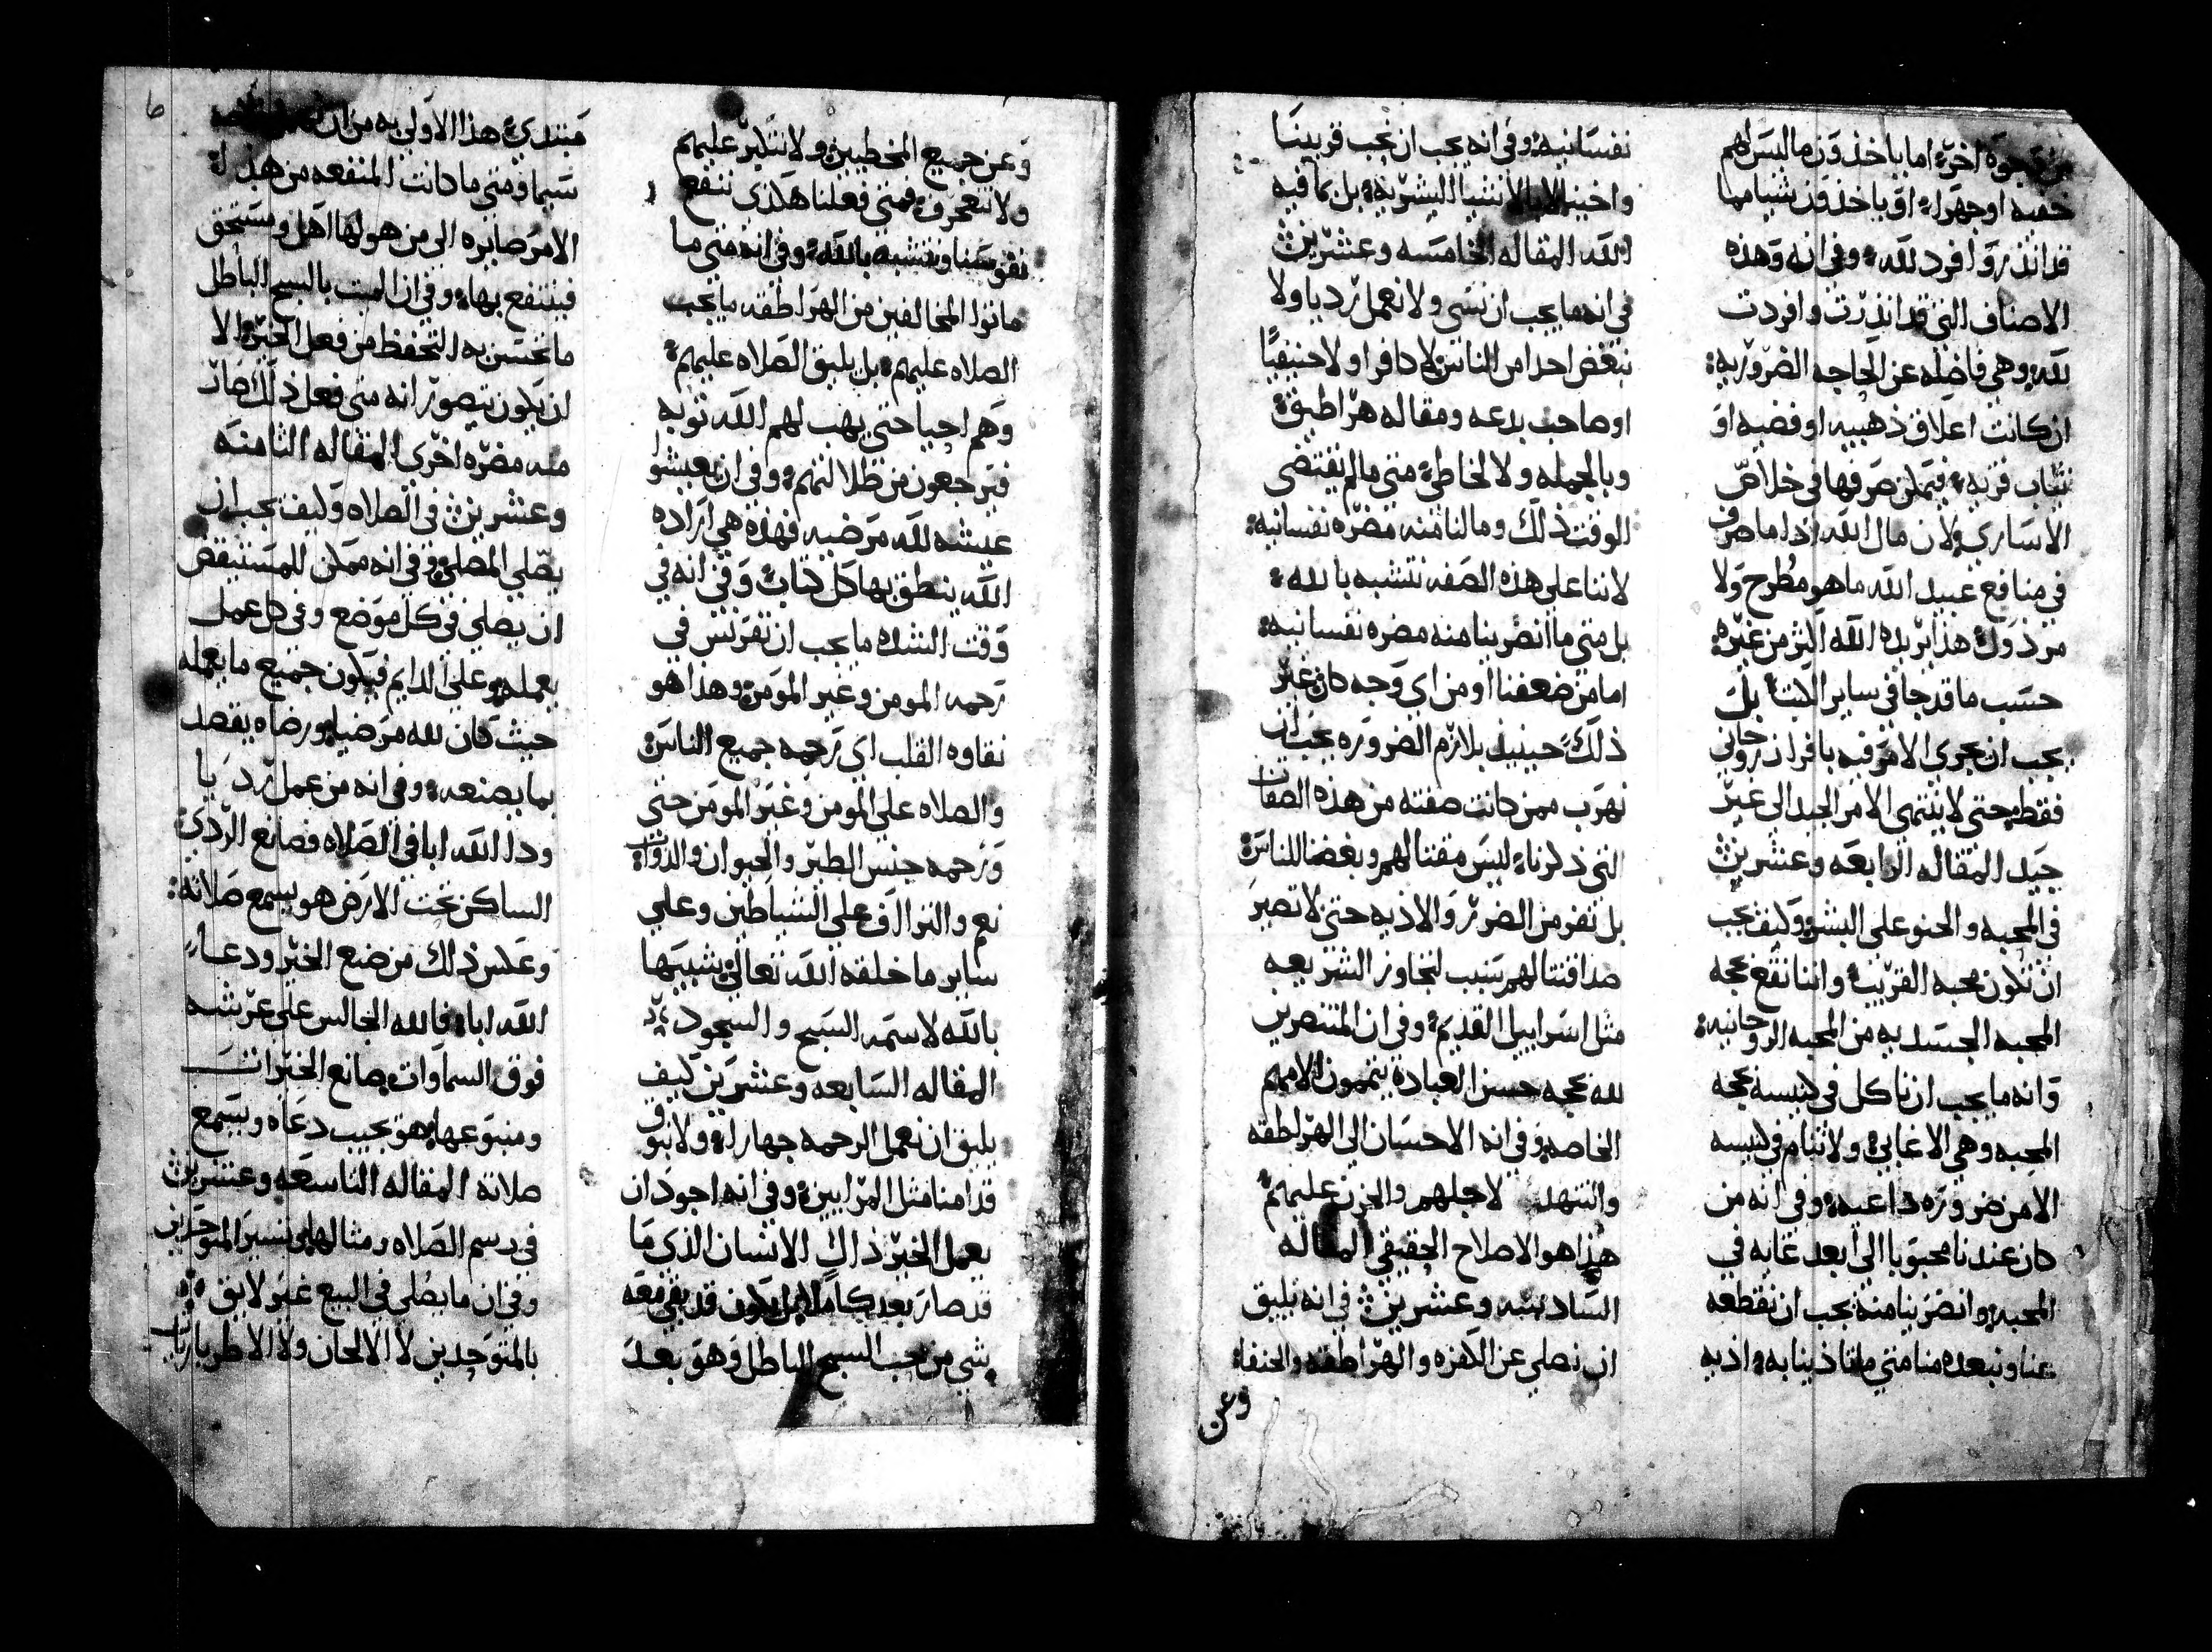 من وجوه اخره اما ياخذون ما ليس لهم
خفيه او جهرا، او ياخذون شيا مما
قد انذروا فرد لله، وفي انه وهذه
الاصناف التي قد انذرت وافردت
لله وهي فاضله عن الحاجه الضروريه:
ان كانت اعلاق ذهبيه او فضيه او
ثياب قربه، فيمكن صرفها في خلاص
الاساري ولان مال الله اذا ما صرف
في منافع عبيد الله ما هو مطرح ولا
مرذول هذا يريده الله اكثر من غيره
حسب ما قد جا في ساير الكتاب بل
يجب ان يجري الامر فيه بافراز روحاني
فقط حتى لا ينتهي الامر الجيد الى غير
جيد المقاله الرابعه وعشرين
في المحبه والحنو على البشر وكيف يجب
ان تكون محبه القريب واننا نقع بحجه
المحبه الجسديه من المحبه الروحانيه:
وانه ما يجب ان ناكل في كنيسه بحجه
المحبه وهي الاغابي، ولا ننام في كنيسه
الامن ضروره داعيه وفي انه من
كان عندنا محبوبا الى ابعد غايه في
المحبه وانضرينا منه يجب ان نقطعه
عنا ونبعده منا متى ما تاذينا به اذيه
نفسانيه وفي انه يجب ان نحب قريبنا
واحبنا لا بالاشيا البشريه بل بما فيه
لله المقاله الخامسه وعشرين
في انه ما يجب ان نسي ولا نعمل رديا ولا
نبغض احدا من الناس لا كافرا ولا حنيفيا
او صاحب بدعه ومقاله هراطيق
وبالجمله ولا لخاطي متى ما لم يقتضى
الوقت ذلك وما لنا منه مضره نفسانيه:
لاننا على هذه الصفه نتشبه بالله:
بل متى ما انضرينا منه مضره نفسانيه:
اما من ضعفنا او من اي وجه كان غير
ذلك حينيذ يلازم الضروره يجب ان
نهرب ممن كانت صفته من هذه الصفات
التي ذكرنا، ليس مقتا لهم وبغضا للناس:
بل نفر من الضرر والاذيه حتى لا تصير
صداقتنا لهم سبب لتجاوز الشريعه
مثل اسراييل القديم، وفي ان المتنصرين
لله بحجه حسن العباده يتممون الامهم
الخاصه وفي انه الاحسان الى الهراطقه
والتنهد لاجلهم والحزن عليهم
هذا هو الاصلاح الحقيقي المقاله
السادسه وعشرين في انه يليق
ان نصلي عن الكفره والهراطقه والحنفا:
وعن
وعن جميع المخطيين ولا نتكبر عليهم
ولا نتعجرف فمتى فعلنا هكذى ننفع
نفوسنا ونتشبه بالله، وفي انه متى ما
ماتوا المخالفين من الهراطقه ما يجب
الصلاه عليهم بل يليق الصلاه عليهم:
وهم احيا حتى يهب لهم الله توبه
فيرجعون من ظلالتهم، وفي ان يعيشوا
عيشه لله مرضيه فهذه هي اراده
الله ينطق بها كل كتاب وفي انه في
وقت الشده ما يجب ان نفرتس في
رحمه المومن وغير المومن وهذا هو
نقاوه القلب اي رحمه جميع الناس
والصلاه على المومن وغير المومن حتى
ورحمه جنس الطير والحيوان والدواب:
نعم والتراوف على الشياطين وعلى
ساير ما خلقه الله تعالى شبيها
بالله لاسمه السبح والسجود
المقاله السابعه وعشرين كيف
يليق ان نعمل الرحمه جهارا، ولا نبوق
قدامنا مثل المرايين، وفي انه اجود ان
يعمل الخير ذاك الانسان الذي ما
قد صار بعد كاملا يكون قد بقي معه
شي من حب السبح الباطل وهو بعد
مبتدي، هذا الاولى به من ان
سيما ومتى ما كانت المنفعه من هذا
الامر صايره الى من هو لها اهل ومستحق
فينتفع بها، وفي ان الميت بالسبح الباطل
ما يحسن به التحفظ من فعل الخير الا
ان يكون يتصور انه متى فعل ذلك صار
منه مضره اخرى المقاله الثامنه
وعشرين في الصلاه وكيف يجب ان
يصلي المصلي، وفي انه ممكن للمستيقض
ان يصلي في كل موضع وفي كل عمل
يعمله وعلى الدايم فيكون جميع ما يعمله
حيث كان لله مرضيا ورضاه يقصد
بما يصنعه وفي انه من عمل رديا
ودعا الله ابا في الصلاه فصانع الردي:
الساكن تحت الارض هو يسمع صلاته:
وعكس ذلك من صنع الخير ودعا
الله ابا، فالله الجالس على عرشه
فوق السماوات صانع الخيرات
ومنبوعها هو يجيب دعاه ويسمع
صلاته المقاله التاسعه وعشرين
في رسم الصلاه ومثالها في سير المتوحدين
وفي ان ما يصلي في البيع غير لايق
بالمتوحدين لا الالحان ولا الاطربارنات